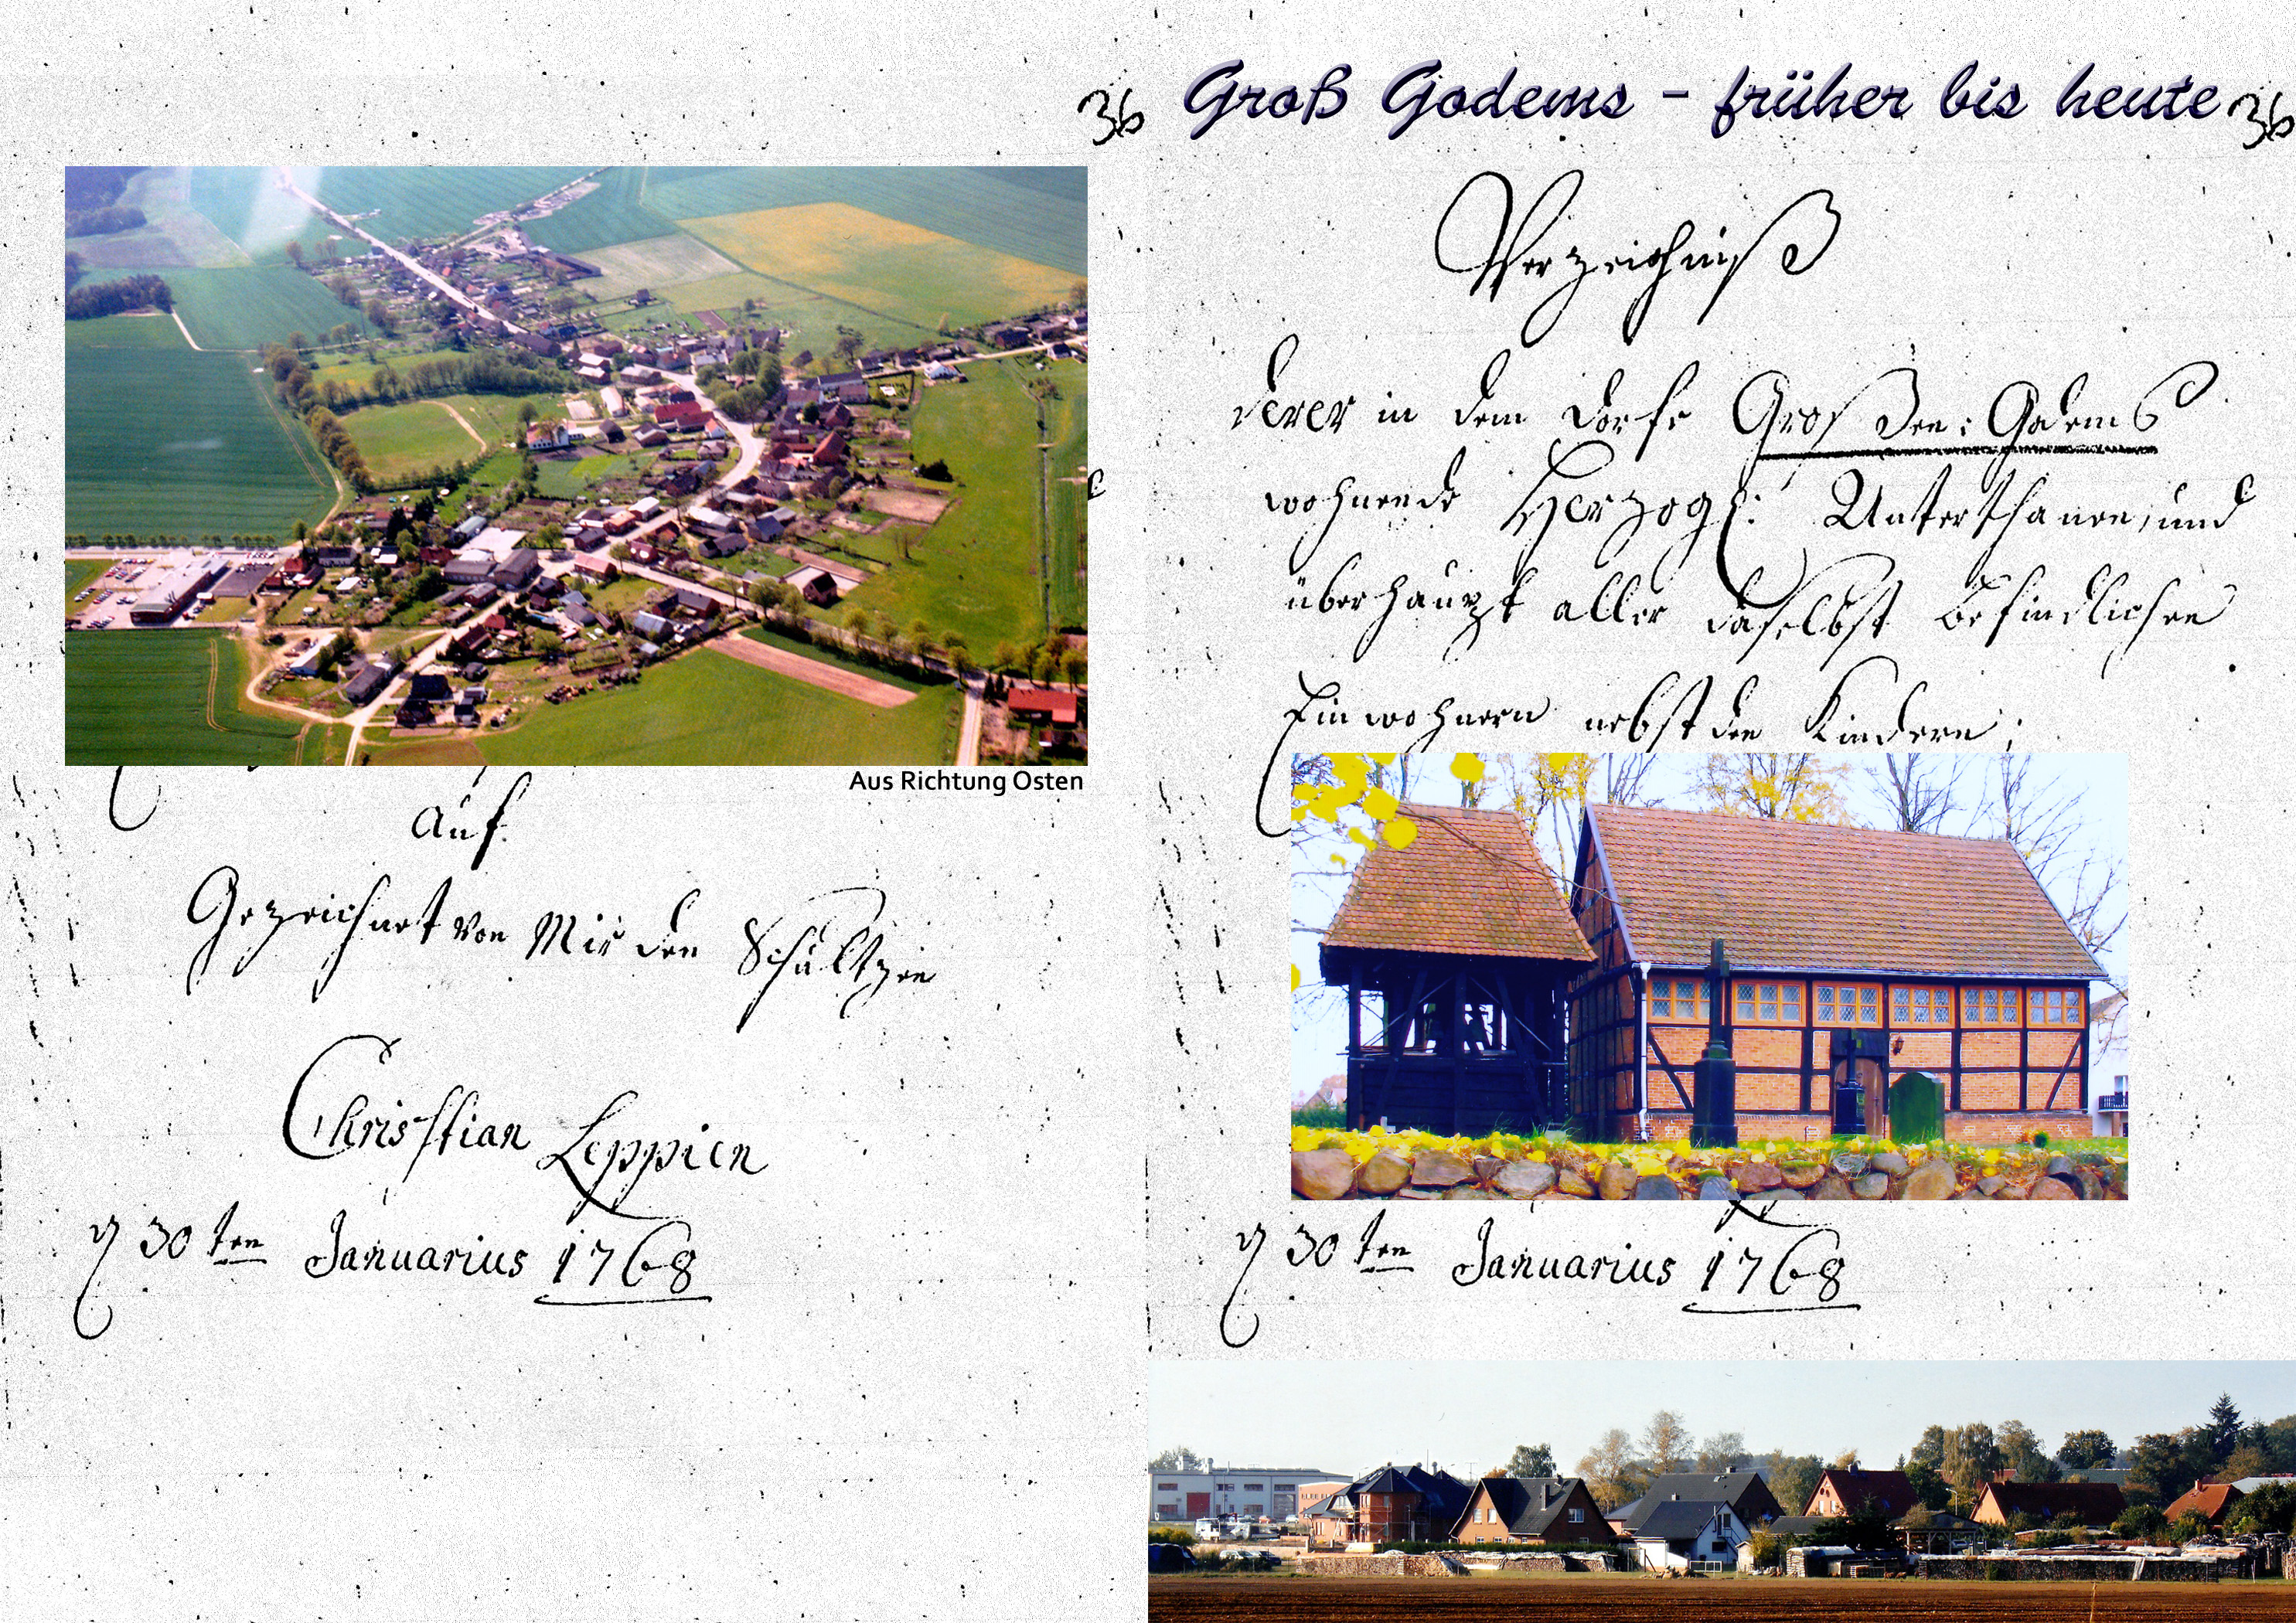 36
Aus Richtung Osten
Auf
Gezeichnet von Mir den Schültzen
Christian Leppien
30 ten Januarius 1768
Groß Godems - früher bis heute
36
Verzeichniß
derer in dem Dorfe Großen: Godems
wohnende Herzogl: Unterthanen, und
überhaupt aller daselbst befindlichen
Einwohnern nebst den Kindern;
30 ten Januarius 1768